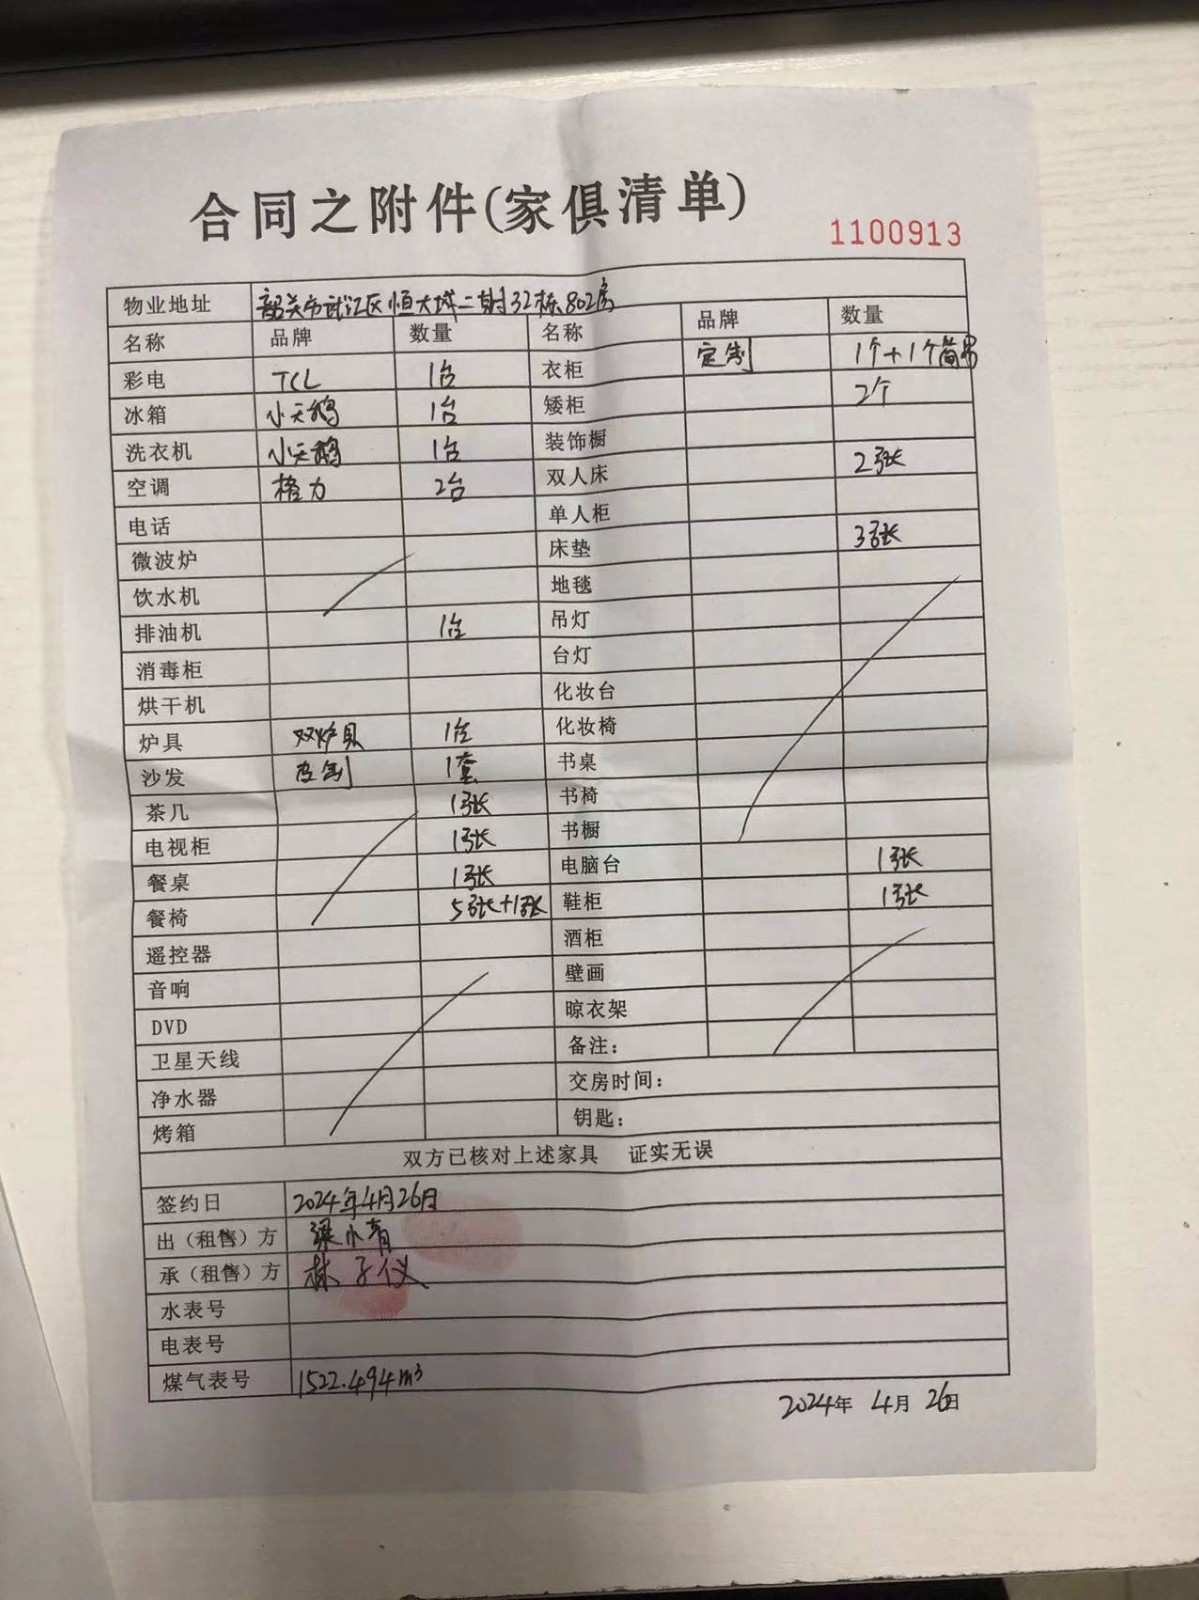 合同之附件(家俱清单)
1100913
物业地址 韶关市武江区恒大城二期32栋802房
名称 品牌 数量 名称 品牌 数量
彩电 TCL 1台 衣柜 定制 1个+1个简易
冰箱 小天鹅 1台 矮柜 2个
洗衣机 小天鹅 1台 装饰橱
空调 格力 2台 双人床 2张
电话 单人柜
微波炉 床垫 3张
饮水机 地毯
排油机 1台 吊灯
消毒柜 台灯
烘干机 化妆台
炉具 双炉具 1台 化妆椅
沙发 皮制 1套 书桌
茶几 1张 书椅
电视柜 1张 书橱
餐桌 1张 电脑台 1张
餐椅 5张+1张 鞋柜 1张
遥控器 酒柜
音响 壁画
DVD 晾衣架
卫星天线 备注：
净水器 交房时间：
烤箱 钥匙：
双方已核对上述家具 证实无误
签约日 2024年4月26日
出（租售）方 梁小青
承（租售）方 林子仪
水表号
电表号
煤气表号 1522.494m³
2024年 4月 26日